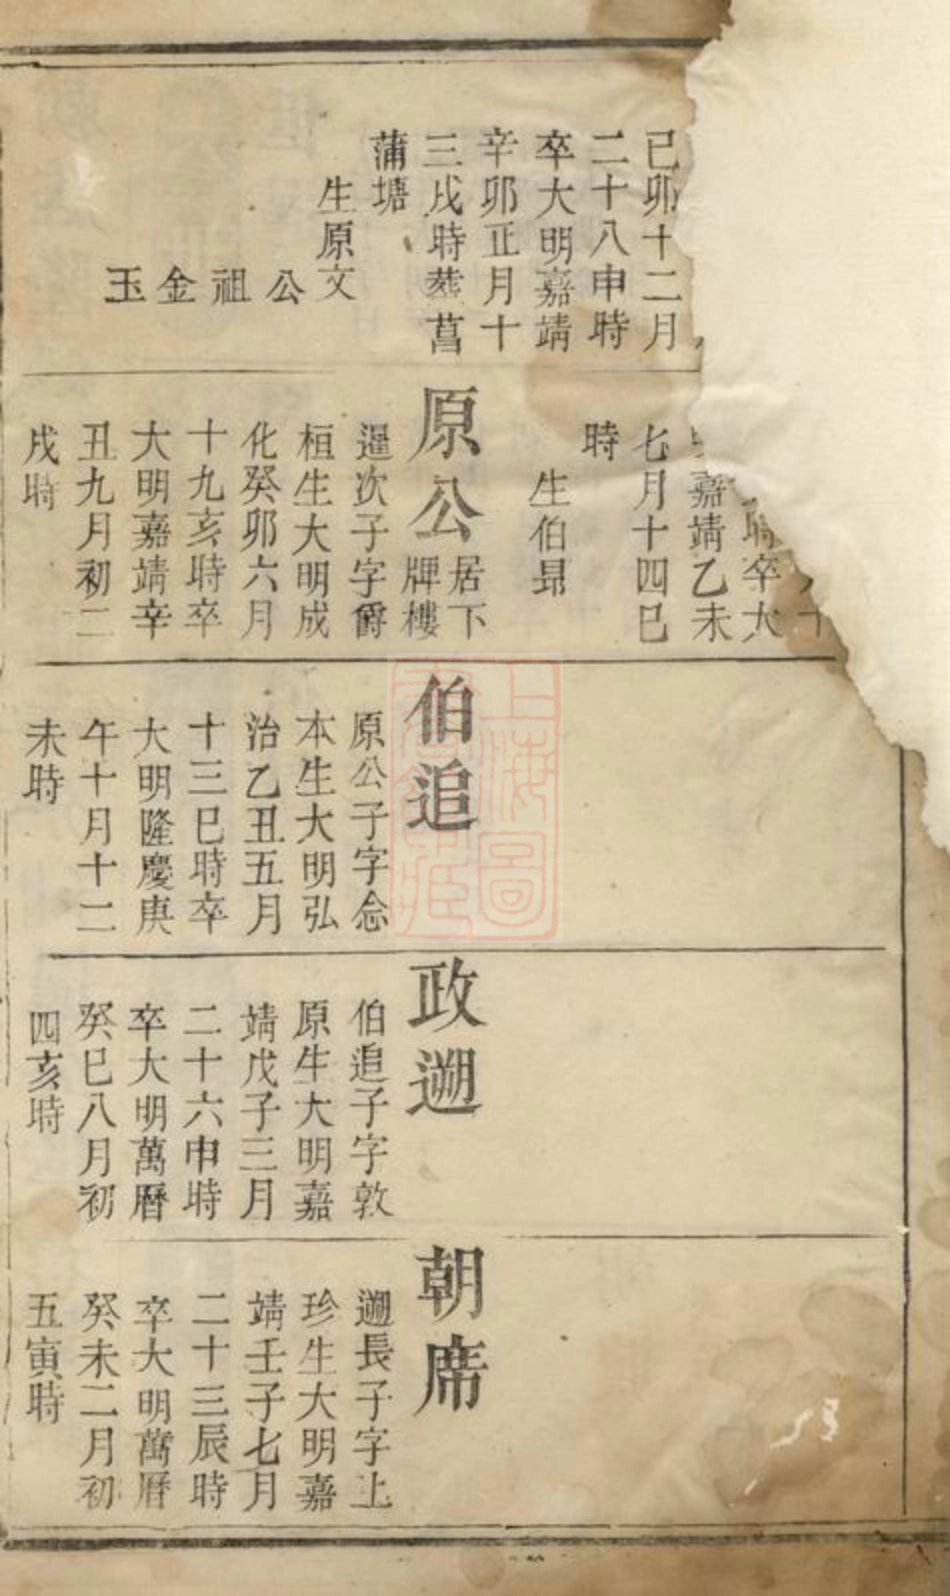 己卯十二月
二十八申時
卒大明嘉靖
辛卯正月十
三戌時葬菖
蒲塘
生原文
公祖金玉
卒大
嘉靖乙未
七月十四巳
時
生伯昻
原公
居下
牌樓
暹次子字爵
桓生大明成
化癸卯六月
十九亥時卒
大明嘉靖辛
丑九月初二
戌時
伯追
原公子字念
本生大明弘
治乙丑五月
十三巳時卒
大明隆慶庚
午十月十二
未時
政遡
伯追子字敦
原生大明嘉
靖戊子三月
二十六申時
卒大明萬曆
癸巳八月初
四亥時
朝席
遡長子字上
珍生大明嘉
靖壬子七月
二十三辰時
卒大明萬曆
癸未二月初
五寅時
上海圖